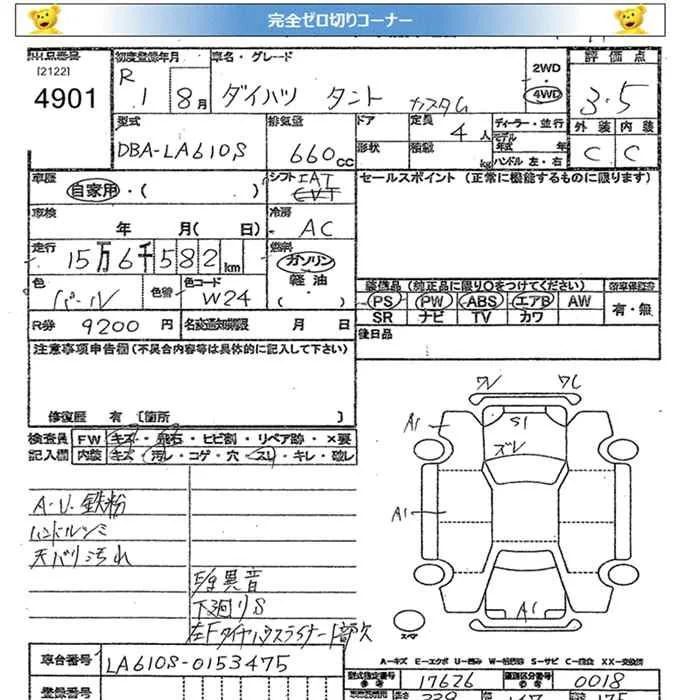 完全ゼロ切りコーナー
出品番号
[2122]
4901
初度登録年月
R 1 8月
車名・グレード
ダイハツ タント カスタム
2WD
・
4WD
評価点
3.5
外装 内装
C C
型式
DBA-LA610S
排気量
660cc
ドア
形状
定員 4人
積載 kg
ディーラー・並行
モデル年式 年
ハンドル 左・右
車歴
自家用・( )
シフト IAT
CVT
セールスポイント (正常に機能するものに限ります)
車検 年 月( 日)
冷房 AC
走行 15万6千582km
燃料
ガソリン
軽油
・( )
色 パール
色替
色コード W24
装備品 (純正品に限り○をつけてください)
PS PW ABS エアB AW
SR ナビ TV カワ
有・無
R券 9200円
名変通知期限 月 日
後日品
注意事項申告欄(不具合内容等は具体的に記入して下さい)
修復歴 有 [箇所 ]
検査員記入欄
FW キズ・飛石・ヒビ割・リペア跡・×要
内装 キズ・汚レ・コゲ・穴・スレ・キレ・破レ
A・U・鉄粉
ハンドルシミ
天バリ汚れ
E/g異音
下廻りS
左Fタイヤハウスライナー1部欠
ワレ ワレ
A1 S1
ズレ
A1
A1
スペア
A-キズ E-エクボ U-凹み W-補修跡 S-サビ C-腐食 XX-交換済
車台番号 LA610S-0153475
登録番号
型式指定番号 17626
類別区分番号 0018